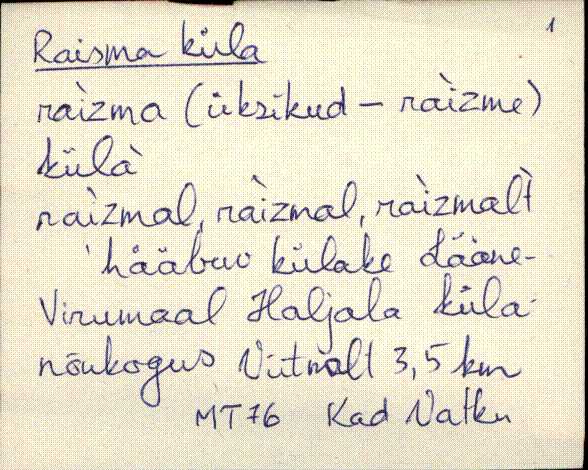 1
Raisma küla
ràizma (üksikud – ràizme)
külà
ràizmal, ràizmal, ràizmalt
hääbuv külake Lääne-
Virumaal Haljala küla-
nõukogus Viitnalt 3,5 km
MT76 Kad Natku